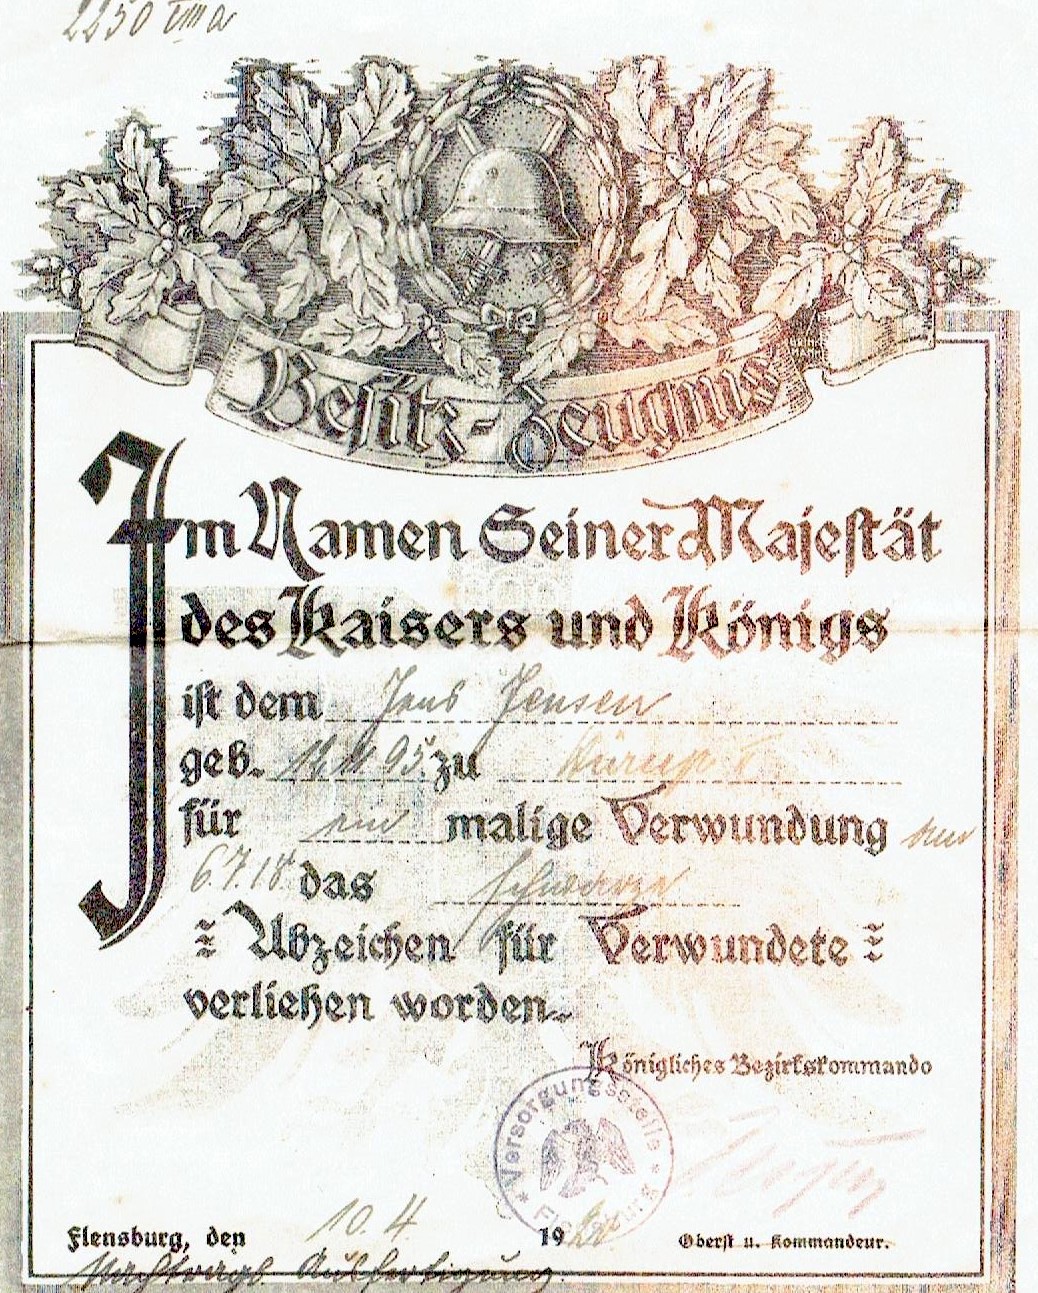 2250 VIII a
Besitz-Zeugnis
Im Namen Seiner Majestät
des Kaisers und Königs
ist dem Jens Jensen
geb. 95 zu
für ein malige Verwundung am
6.7.18 das schwarze
Abzeichen für Verwundete
verliehen worden.
Königliches Bezirkskommando
Versorgungsstelle Flensburg
Flensburg, den 10.4 19
Oberst u. Kommandeur.
Nachträgl. Ausfertigung.